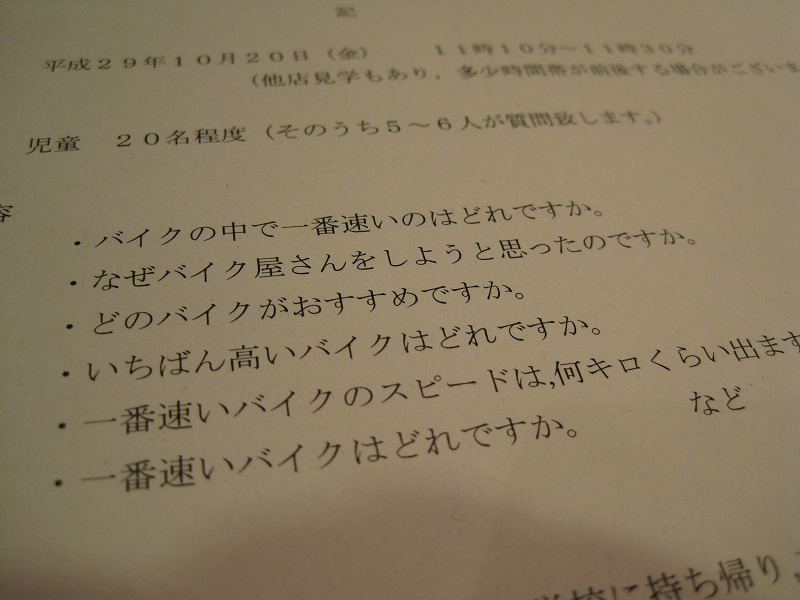 記
平成29年10月20日（金）　　11時10分～11時30分
（他店見学もあり，多少時間帯が前後する場合がございま
児童　20名程度（そのうち5～6人が質問致します。）
容
・バイクの中で一番速いのはどれですか。
・なぜバイク屋さんをしようと思ったのですか。
・どのバイクがおすすめですか。
・いちばん高いバイクはどれですか。
・一番速いバイクのスピードは,何キロくらい出ます
・一番速いバイクはどれですか。　　　など
学校に持ち帰り，